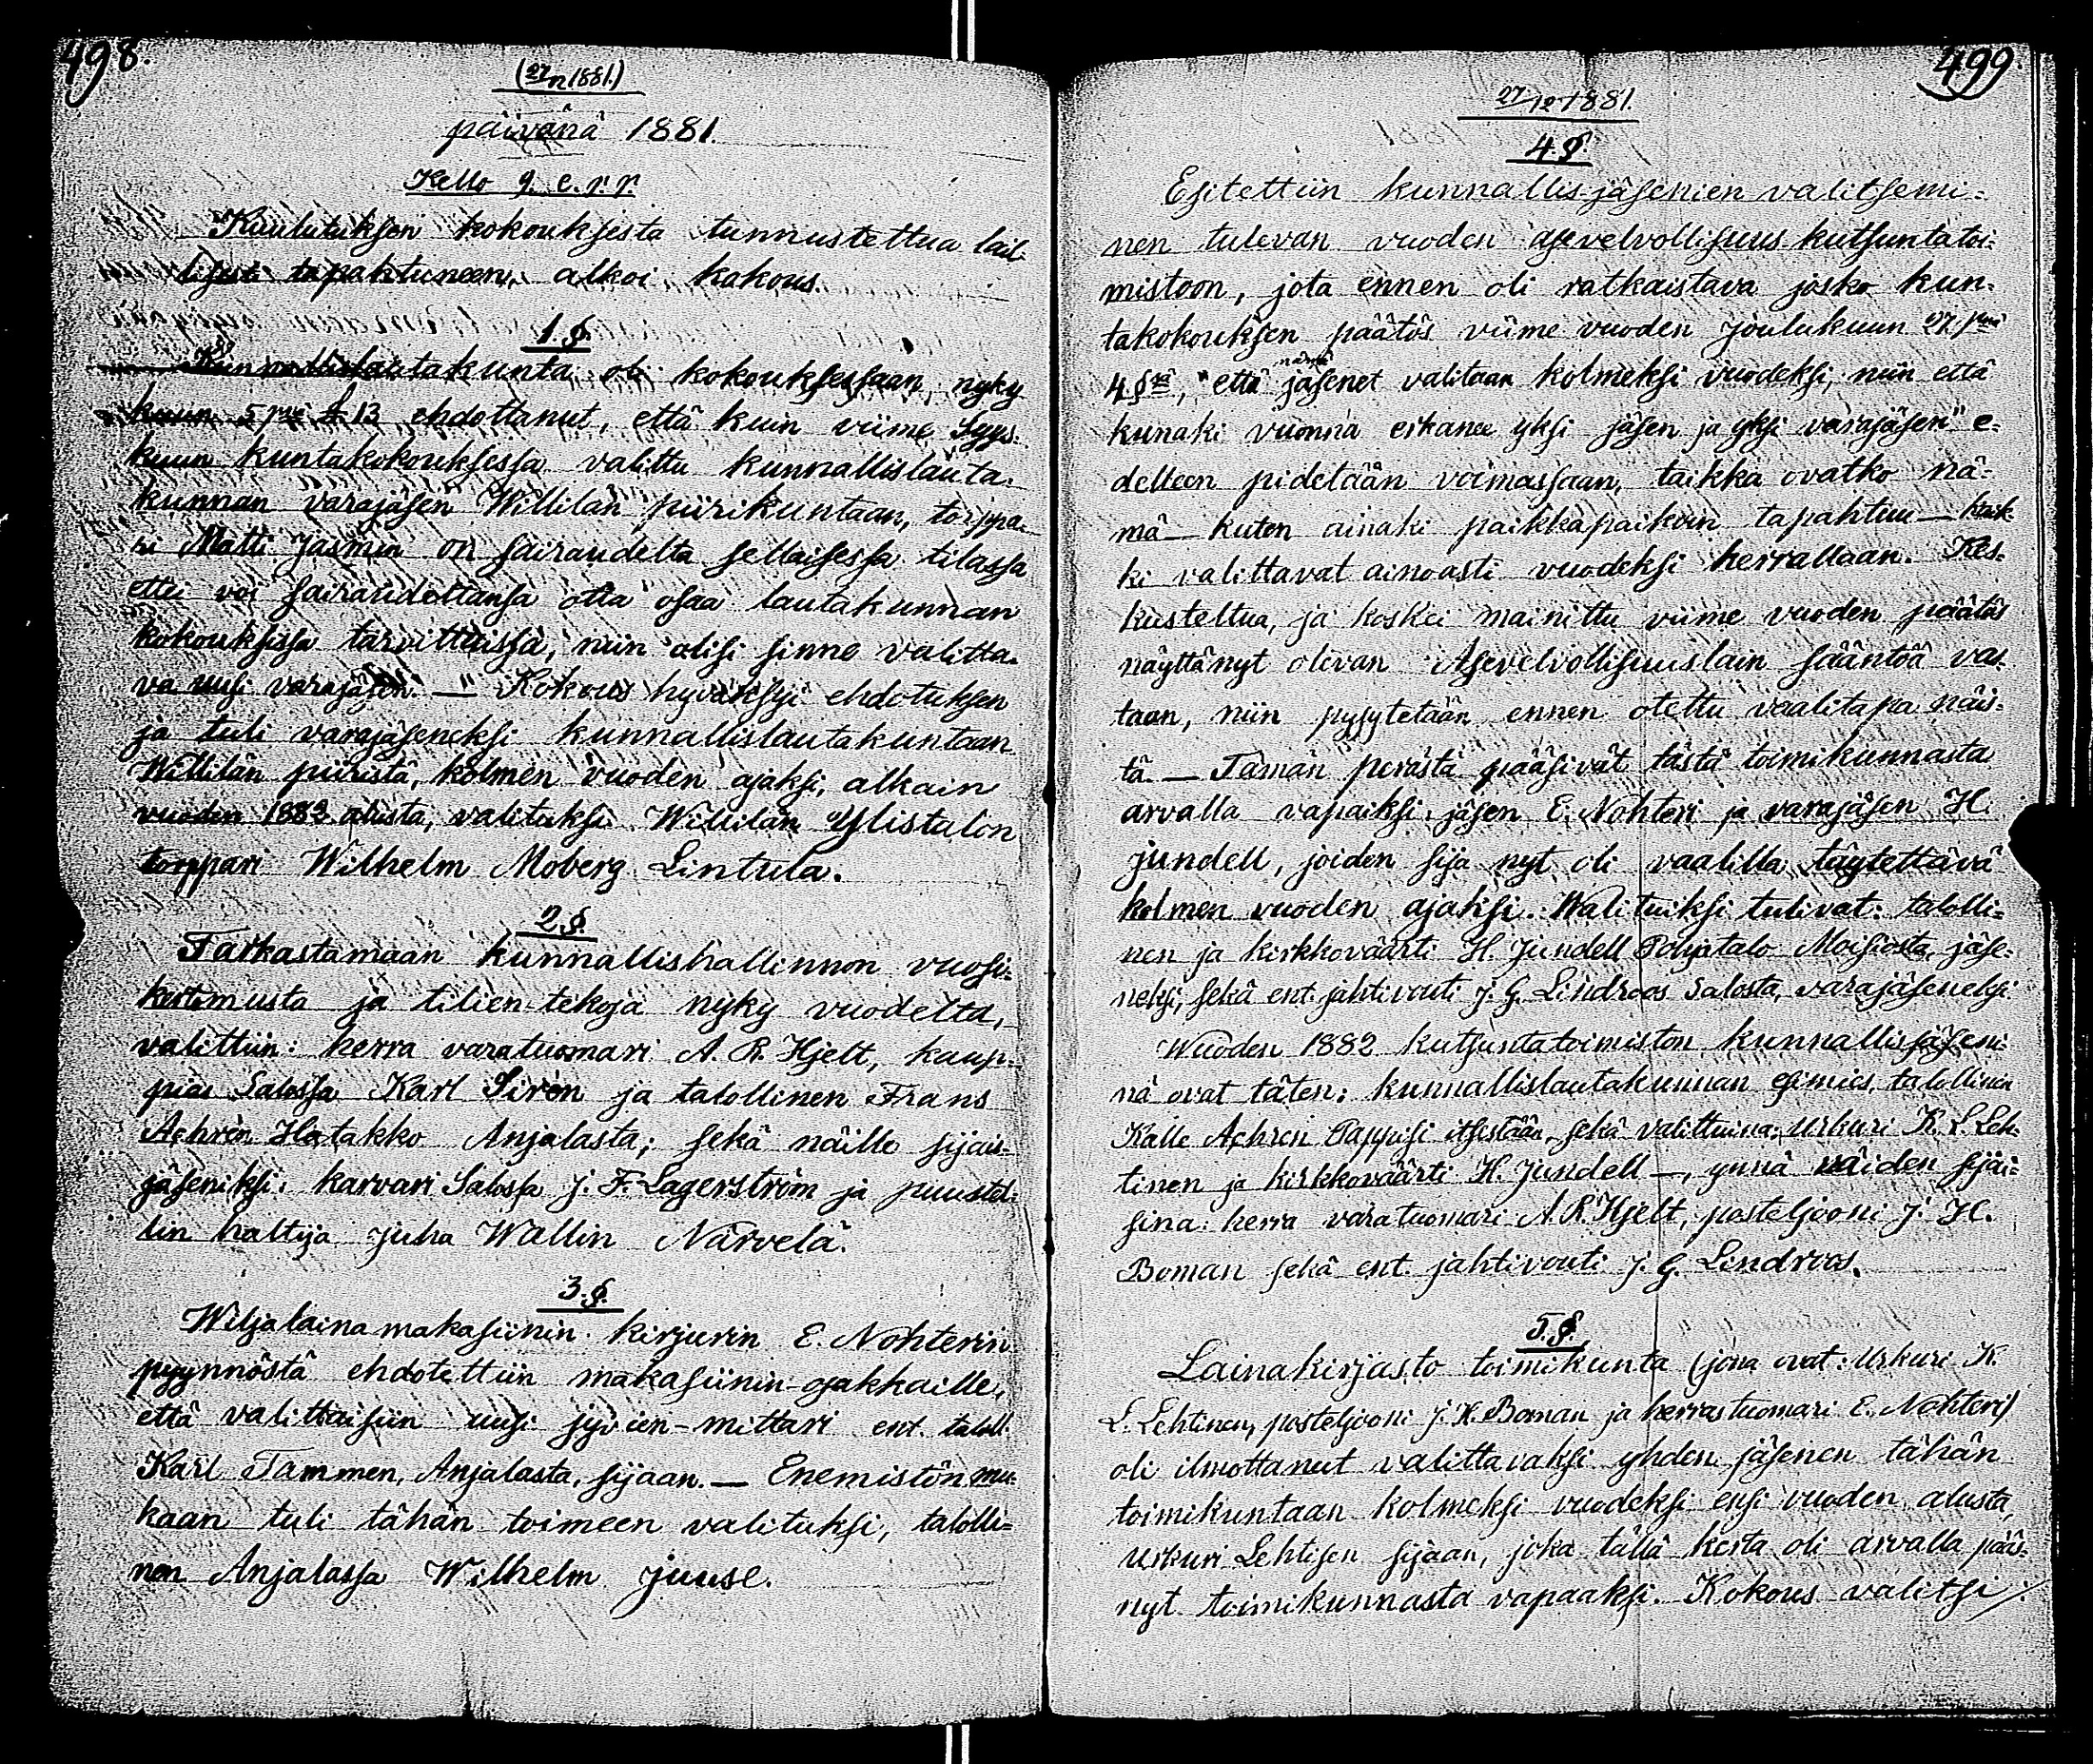 498.
(27/12 1881.)
päivänä 1881.
Kello 9. e. p. p.
Kuulutuksen kokouksesta tunnustettua lail-
lisesti tapahtuneen, alkoi kokous.
1.§.
Kunnallislautakunta oli kokouksessaan, nyky
kuun 5 p:nä § 13 ehdottanut, että kuin viime Syys-
kuun kuntakokouksessa valittu kunnallislauta-
kunnan varajäsen Willilän piirikuntaan, torppa-
ri Matti Jasmin on sairaudelta sellaisessa tilassa
ettei voi sairaudeltansa ottaa osaa lautakunnan
kokouksissa tarvittaissa, niin olisi sinne valitta-
va uusi varajäsen. — Kokous hyväksyi ehdotuksen
ja tuli varajäseneksi kunnallislautakuntaan
Willilän piiristä, kolmen vuoden ajaksi, alkain
vuoden 1882 alusta, valituksi Willilän Ylistalon
torppari Wilhelm Moberg Lintula.
2.§.
Tarkastamaan kunnallishallinnon vuosi-
kertomusta ja tilien-tekoja nyky vuodelta,
valittiin: herra varatuomari A. R. Hjelt, kaup-
pias Salossa Karl Sirén ja talollinen Frans
Achrén Hatakko Anjalasta; sekä näille sijais-
jäseniksi: karvari Salossa J. F. Lagerström ja puustel-
lin haltija Juha Wallin Närvelä.
3.§.
Wiljalainamakasiinin kirjurin E. Nohterin
pyynnöstä ehdotettiin makasiinin-osakkaille,
että valittaisiin uusi jyvien-mittari ent. taloll.
Karl Tammen, Anjalasta, sijaan. — Enemistön mu-
kaan tuli tähän toimeen valituksi, talolli-
nen Anjalassa Wilhelm Juuse.
499.
27/12 1881.
4.§.
Esitettiin kunnallis-jäsenien valitsemi-
nen tulevan vuoden asevelvollisuus kutsuntatoi-
mistoon, jota ennen oli ratkaistava josko kun-
takokouksen päätös viime vuoden joulukuun 27 p:nä
4 §:ssä, "että nämä jäsenet valitaan kolmeksi vuodeksi, niin että
kunaki vuonna erkanee yksi jäsen ja yksi varajäsen" e-
delleen pidetään voimassaan, taikka ovatko nä-
mä — kuten ainaki paikkapaikoin tapahtuu — kaik-
ki valittavat ainoasti vuodeksi kerrallaan. Kes-
kusteltua, ja koska mainittu viime vuoden päätös
näyttänyt olevan Asevelvollisuuslain sääntöä vas-
taan, niin pysytetään ennen otettu vaalitapa näis-
tä. — Tämän perästä pääsivät tästä toimikunnasta
arvalla vapaiksi, jäsen E. Nohteri ja varajäsen H.
Jundell, joiden sija nyt oli vaalilla täytettävä
kolmen vuoden ajaksi. Walituiksi tulivat: talolli-
nen ja kirkkoväärti H. Jundell Pohjatalo Moisiosta, jäse-
neksi, sekä ent. jahtivouti J. G. Lindroos Salosta, varajäseneksi.
Wuoden 1882 kutsuntatoimiston kunnallisjäseni-
nä ovat täten: kunnallislautakunnan esimies, talollinen
Kalle Achren Pappisi itsestään, sekä valittuina: Urkuri K. L. Leh-
tinen ja kirkkoväärti H. Jundell —, ynnä näiden sijai-
sina: herra varatuomari A. R. Hjelt, posteljooni J. H.
Boman sekä ent. jahtivouti J. G. Lindroos.
5.§.
Lainakirjasto toimikunta (jona ovat: Urkuri K.
L. Lehtinen, posteljooni J. H. Boman ja herrastuomari E. Nohteri)
oli ilmottanut valittavaksi yhden jäsenen tähän
toimikuntaan kolmeksi vuodeksi ensi vuoden alusta,
Urkuri Lehtisen sijaan, joka tällä kerta oli arvalla pääs-
nyt toimikunnasta vapaaksi. Kokous valitsi